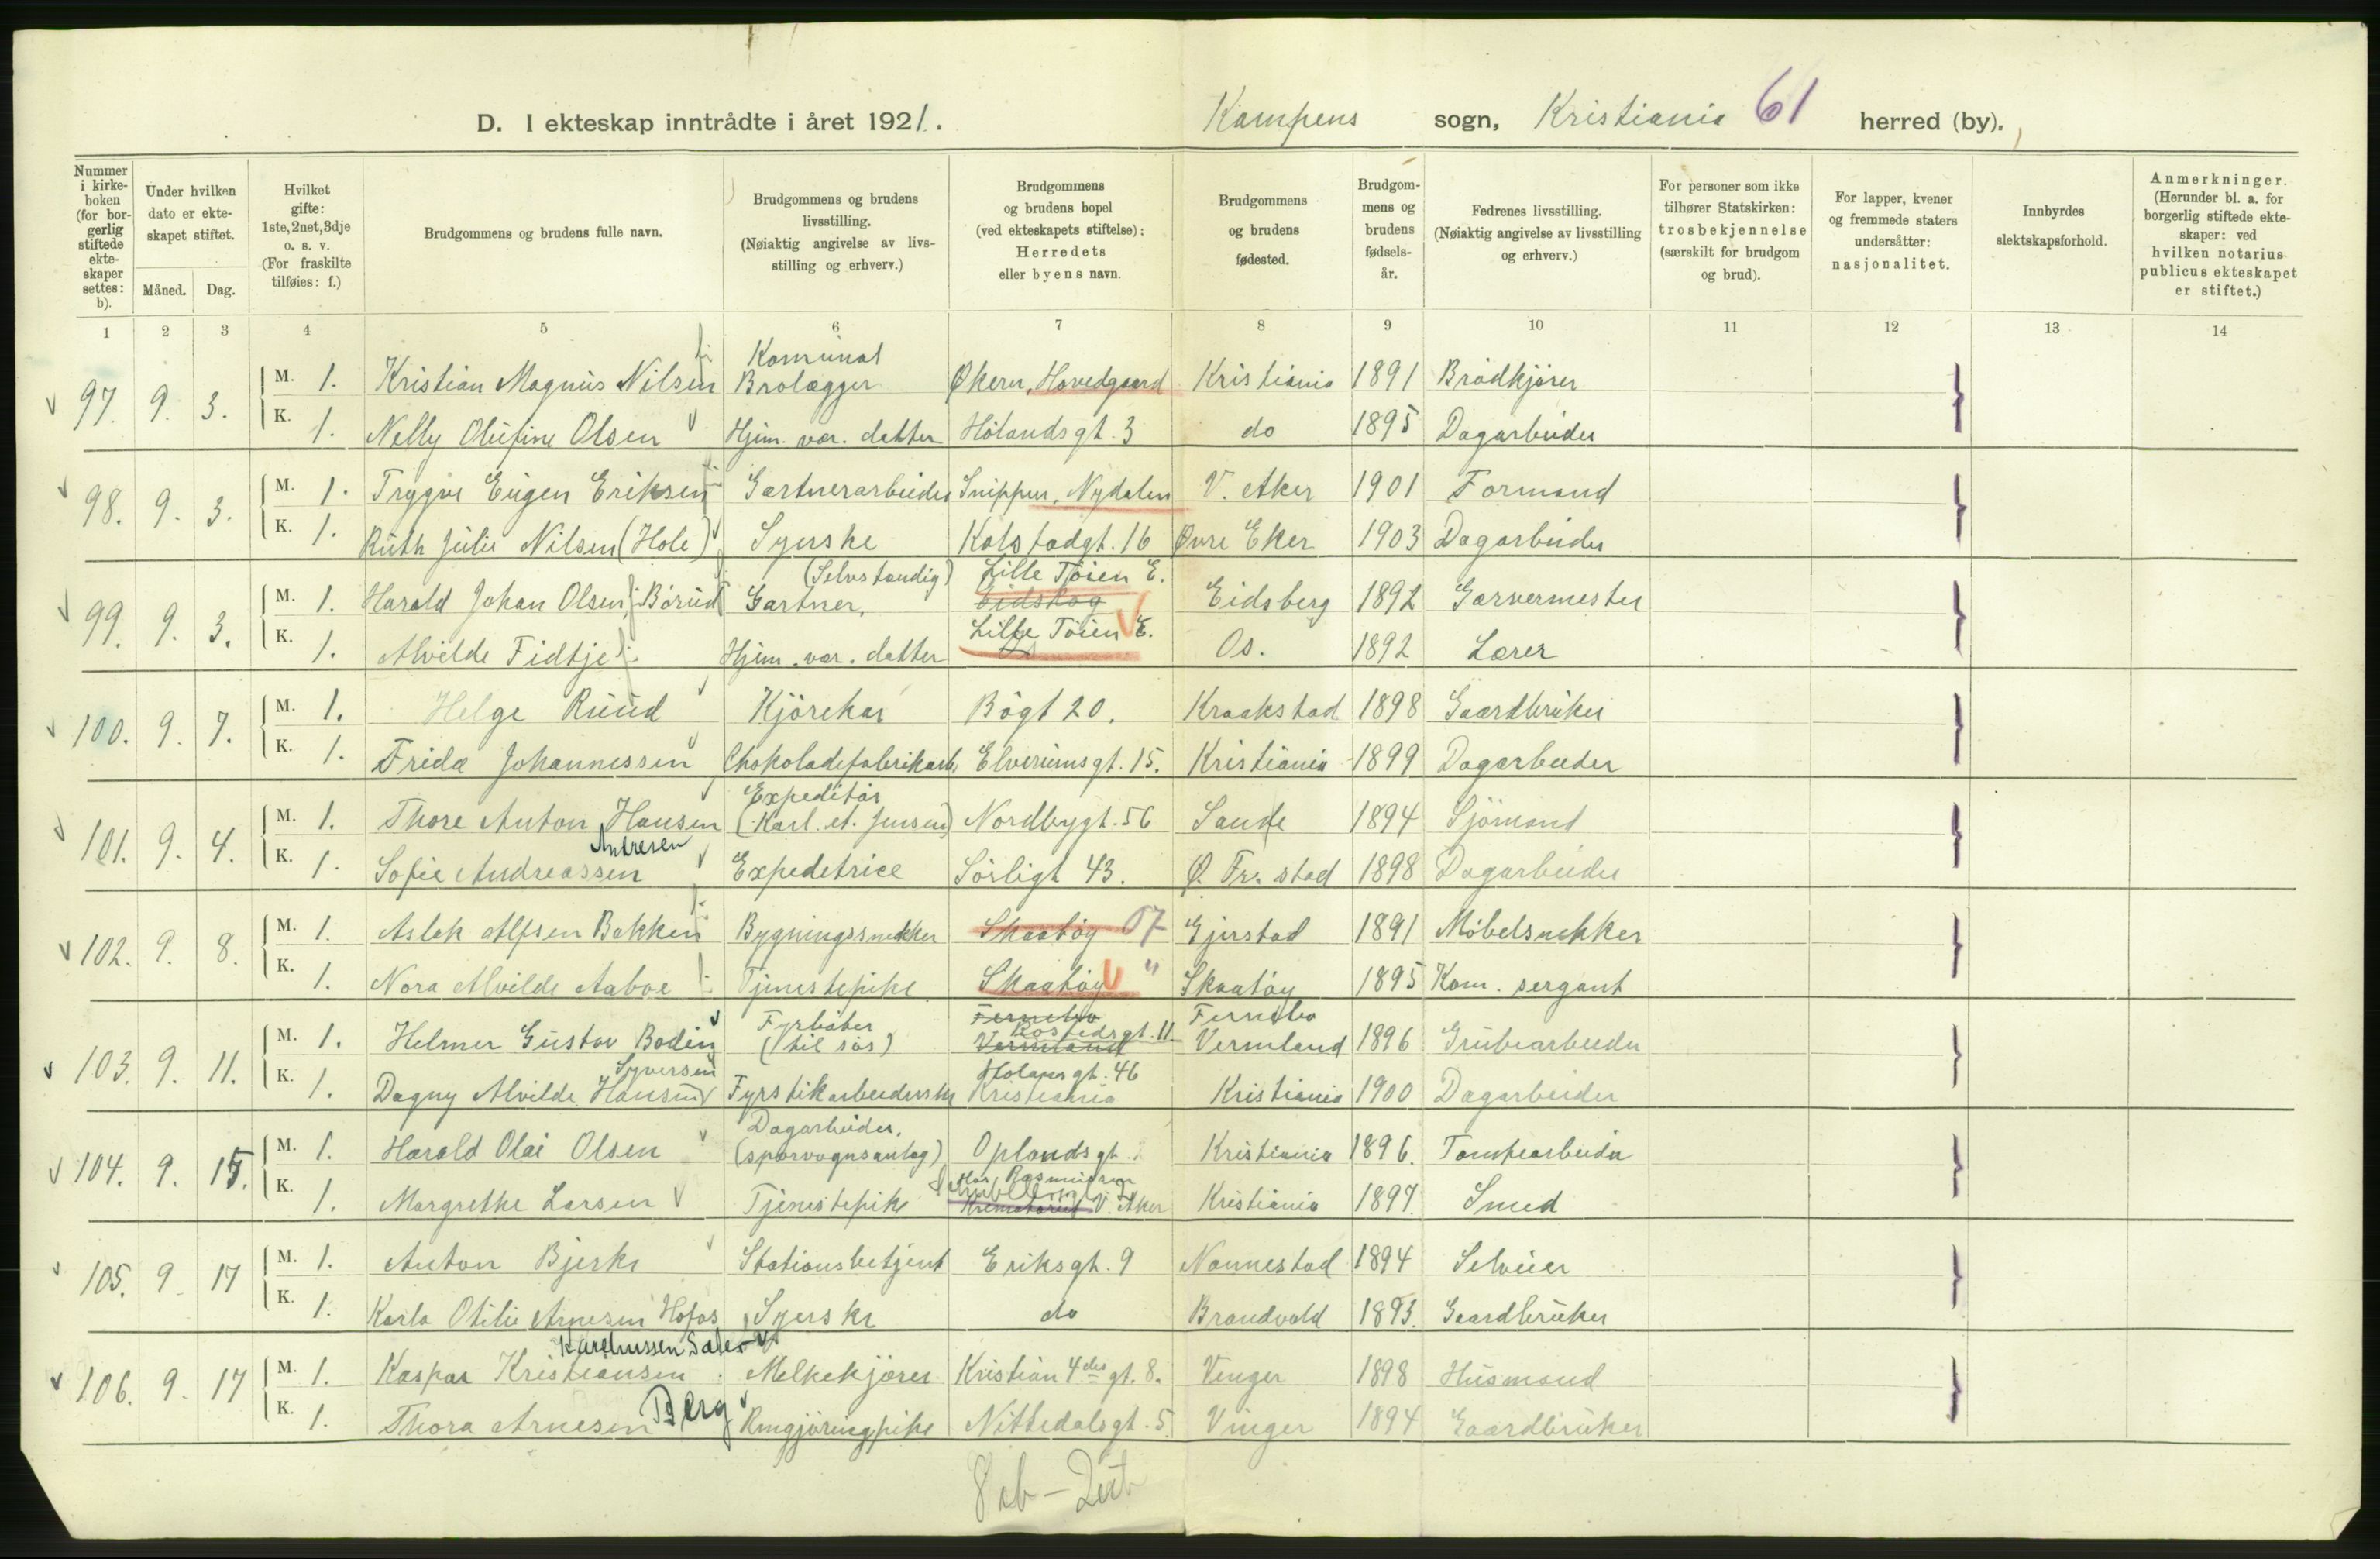 D. I ekteskap inntrådte i året 1921. Kampens sogn, Kristiania 61 herred (by).
Nummer i kirke-boken (for bor-gerlig stiftede ekte-skaper settes: b).
Under hvilken dato er ekte-skapet stiftet.
Måned. Dag.
Hvilket gifte: 1ste, 2net, 3dje o. s. v. (For fraskilte tilføies: f.)
Brudgommens og brudens fulle navn.
Brudgommens og brudens livsstilling. (Nøiaktig angivelse av livs-stilling og erhverv.)
Brudgommens og brudens bopel (ved ekteskapets stiftelse): Herredets eller byens navn.
Brudgommens og brudens fødested.
Brudgom-mens og brudens fødsels-år.
Fedrenes livsstilling. (Nøiaktig angivelse av livsstilling og erhverv.)
For personer som ikke tilhører Statskirken: trosbekjennelse (særskilt for brudgom og brud).
For lapper, kvener og fremmede staters undersåtter: nasjonalitet.
Innbyrdes slektskapsforhold.
Anmerkninger. (Herunder bl. a. for borgerlig stiftede ekte-skaper: ved hvilken notarius publicus ekteskapet er stiftet.)
1 2 3 4 5 6 7 8 9 10 11 12 13 14
Komunal
97. 9. 3. M. 1. Kristian Magnus Nilsen Brolægger Økern, Hovedgaard Kristiania 1891 Brødkjører
K. 1. Nelly Olufine Olsen Hjem. vær. datter Hølandsgt. 3 do 1895 Dagarbeider
98. 9. 3. M. 1. Trygve Eugen Eriksen Gartnerarbeider Snippen, Nydalen V. Aker 1901 Formand
K. 1. Ruth Julie Nilsen (Hole) Syerske Kolstadgt. 16 Øvre Eker 1903 Dagarbeider
(Selvstændig) Lille Tøien E.
99. 9. 3. M. 1. Harald Johan Olsen Børud Gartner, Eidskog Eidsberg 1892 Garvermester
Lille Tøien E.
K. 1. Alvilde Fidtje Hjem. vær. datter Os Os. 1892 Lærer
100. 9. 7. M. 1. Helge Ruud Kjørekar Bøgt 20. Kraakstad 1898 Gaardbruker
K. 1. Frida Johannessen Chokoladefabrikarb. Elverumsgt. 15. Kristiania 1899 Dagarbeider
Expeditør
101. 9. 4. M. 1. Thore Anton Hansen (Karl. A. Jensen) Nordbygt. 56 Sande 1894 Sjømand
Andresen
K. 1. Sofie Andreassen Expeditrice Sørligt 43. Ø. Fr. stad 1898 Dagarbeider
102. 9. 8. M. 1. Aslak Alfsen Bakken Bygningssnekker Skaatøy 07 Gjerstad 1891 Møbelsnekker
K. 1. Nora Alvilde Aabøe Tjenestepike Skaatøy " Skaatøy 1895 Kom. sergant
Fyrbøter Fernebo Fernebo
Rostedsgt. 11
103. 9. 11. M. 1. Helmer Gustav Bodin (til sjøs) Vermland Vermland 1896 Grubearbeider
Syversen Holarsgt. 46
K. 1. Dagny Alvilde Hansen Fyrstikarbeiderske Kristiania Kristiania 1900 Dagarbeider
Dagarbeider,
104. 9. 15. M. 1. Harald Olai Olsen (sporvognsanlæg) Oplandsgt. Kristiania 1896. Tomtearbeider
Rasmussen
K. 1. Margrethe Larsen Tjenestepike Krematoriet V. Aker Kristiania 1897. Smed
105. 9. 17 M. 1. Anton Bjerke Stationsbetjent Eriksgt. 9 Nannestad 1894 Selveier
K. 1. Karla Otilie Arnesen Hofos Syerske do Brandvold 1893. Gaardbruker
106. 9. 17 M. 1. Kaspar Kristiansen Melkekjører Kristian 4des gt. 8. Vinger 1898 Husmand
K. 1. Thora Arnesen Berg Rengjøringspike Nittedalsgt. 5. Vinger 1894 Gaardbruker